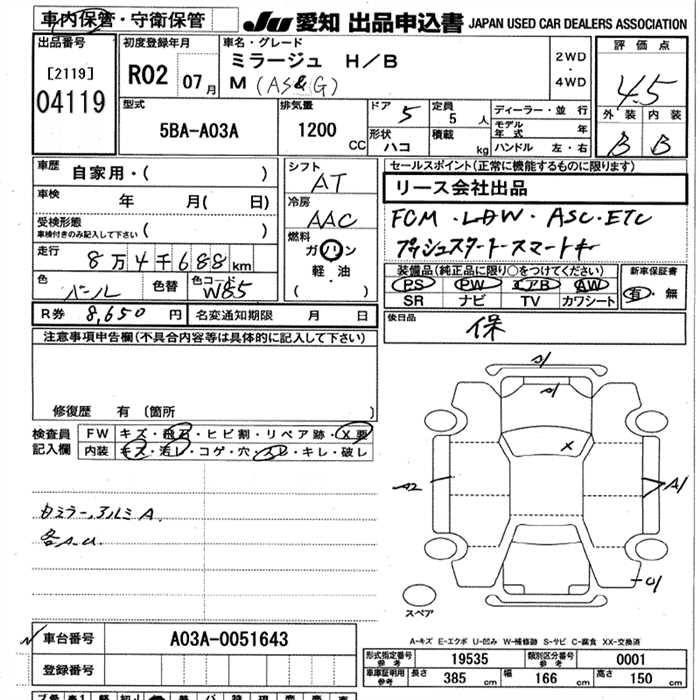 車内保管・守衛保管
JU 愛知 出品申込書 JAPAN USED CAR DEALERS ASSOCIATION
出品番号
[2119]
04119
初度登録年月
R02 07月
車名・グレード
ミラージュ H/B
M (AS&G)
2WD
・
4WD
評価点
4.5
外装 内装
B B
型式
5BA-A03A
排気量
1200 CC
ドア 5
形状 ハコ
定員 5 人
積載 kg
ディーラー・並行
モデル年式 年
ハンドル 左・右
車歴 自家用・( )
車検 年 月( 日)
受検形態
車検付きのみ記入して下さい ( )
走行 8万4千688km
色 パール 色替 色コード W85
シフト AT
冷房 AAC
燃料
ガソリン
軽・油
( )
セールスポイント(正常に機能するものに限ります)
リース会社出品
FCM・LDW・ASC・ETC
プッシュスタートスマートキー
装備品(純正品に限り○をつけてください)
PS PW エアB AW
SR ナビ TV カワシート
新車保証書
有・無
R券 8,650円 名変通知期限 月 日
後日品 保
注意事項申告欄(不具合内容等は具体的に記入して下さい)
修復歴 有 〔箇所 〕
検査員記入欄
FW キズ・飛石・ヒビ割・リペア跡・X要
内装 キズ・汚レ・コゲ・穴・スレ・キレ・破レ
ミラー,アルミA
各A.U.
A1
A1
X
A2
A1
U1
スペア
A-キズ E-エクボ U-凹み W-補修跡 S-サビ C-腐食 XX-交換済
車台番号 A03A-0051643
登録番号
形式指定番号 参考 19535 類別区分番号 参考 0001
車庫証明用 参考 長さ 385 cm 幅 166 cm 高さ 150 cm